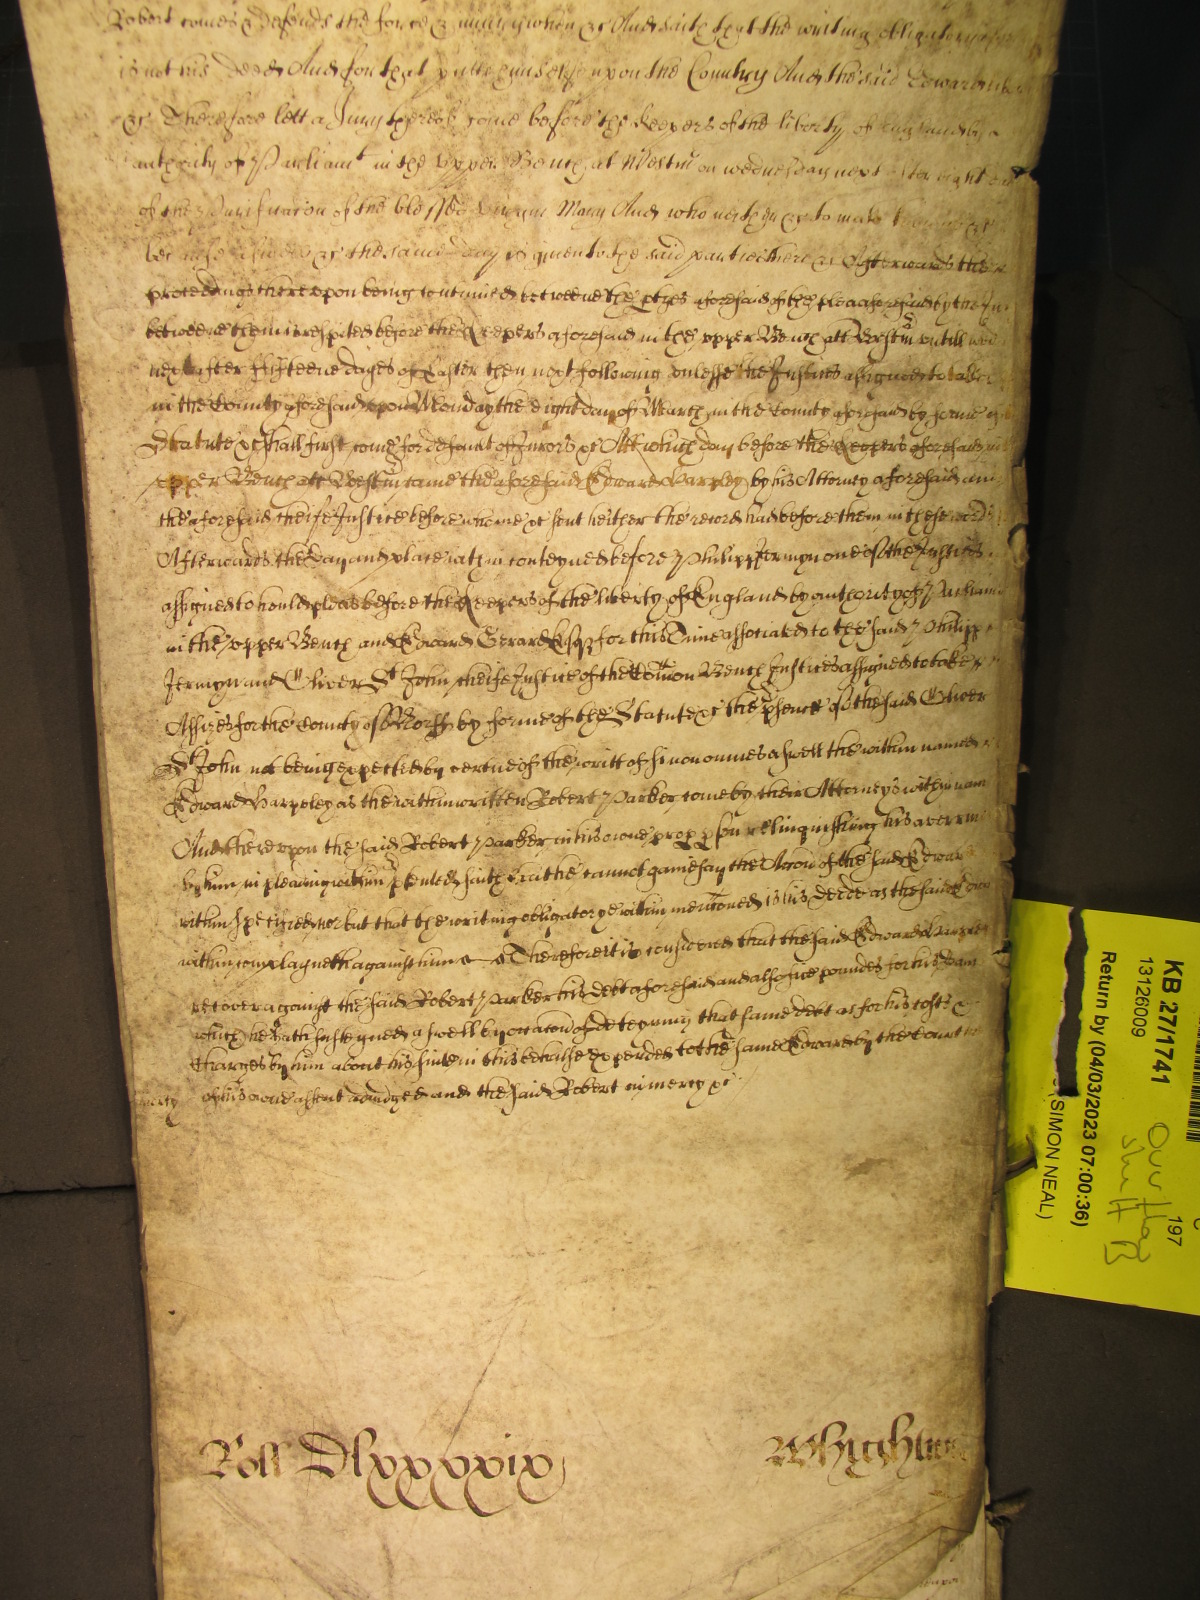 Robert comes & defends the force & iniury when &c And saith that the writing obligatory
is not his deed And for that putts himselfe upon the Country And the said Edward
&c Therefore lett a Jury thereof come before the keepers of the liberty of England by
authority of Parliamt in the Upper Bench at Westm on wednesday next after eight
of the Purification of the blessed Virgin Mary And who neither &c to make &c
because aswell &c the same day is given to the said parties there &c Afterwards the
proceedings thereupon being continued betweene the pties aforesaid of the plea aforesaid by the Ju
betweene them is respited before the Keepers aforesaid in the upper Bench att Westm untill wed
next after fifteene dayes of Easter then next following unlesse the Justices assigned to take
in the County aforesaid upon Monday the eight day of March in the County aforesaid by forme of
Statute &c shall first come for default of Jurors &c Att which day before the Keepers aforesaid in
upper Bench att Westm came the aforesaid Edward Barpley by his Attorney aforesaid and
the aforesaid cheife Justice before whome &c sent heither the record had before them in these words
Afterwards the day and place within conteyned before Philipp Jermyn one of the Justices
assigned to hould pleas before the Keepers of the liberty of England by authority of Parliam
in the upper Bench and Edward Gerard Esqr for this time associated to the said Philipp
Jermyn and Oliver St John cheife Justice of the Comon Bench Justices assigned to take
Assizes for the County of Norff by forme of the Statute &c the psence of the said Oliver
St John not being expected by vertue of the writt of si non omnes aswell the within named
Edward Barpley as the within written Robert Parker come by their Attorneys within nam
And thereupon the said Robert Parker in his owne prop pson relinquishing his averrm
by him in pleading within ptended saith that he cannot gainesay the Accon of the said Edward
within specifyed nor but that the writing obligatorye within mencioned is his deede as the said Edw
within complayneth against him Therefore it is considered that the said Edward
recover against the said Robert Parker his debt aforesaid and also five pounds for his dam
which he hath susteyned aswell by occacion of deteyning that same debt as for his costs &
Charges by him about his suite in this behalfe expended to the same Edward by the Court
of his owne assent adiudged and the said Robert in mercy &c
mercy
Roll Dlxxxxix
KB 27/1741
13126009
Return by (04/03/2023 07:00:36)
(SIMON NEAL)
197